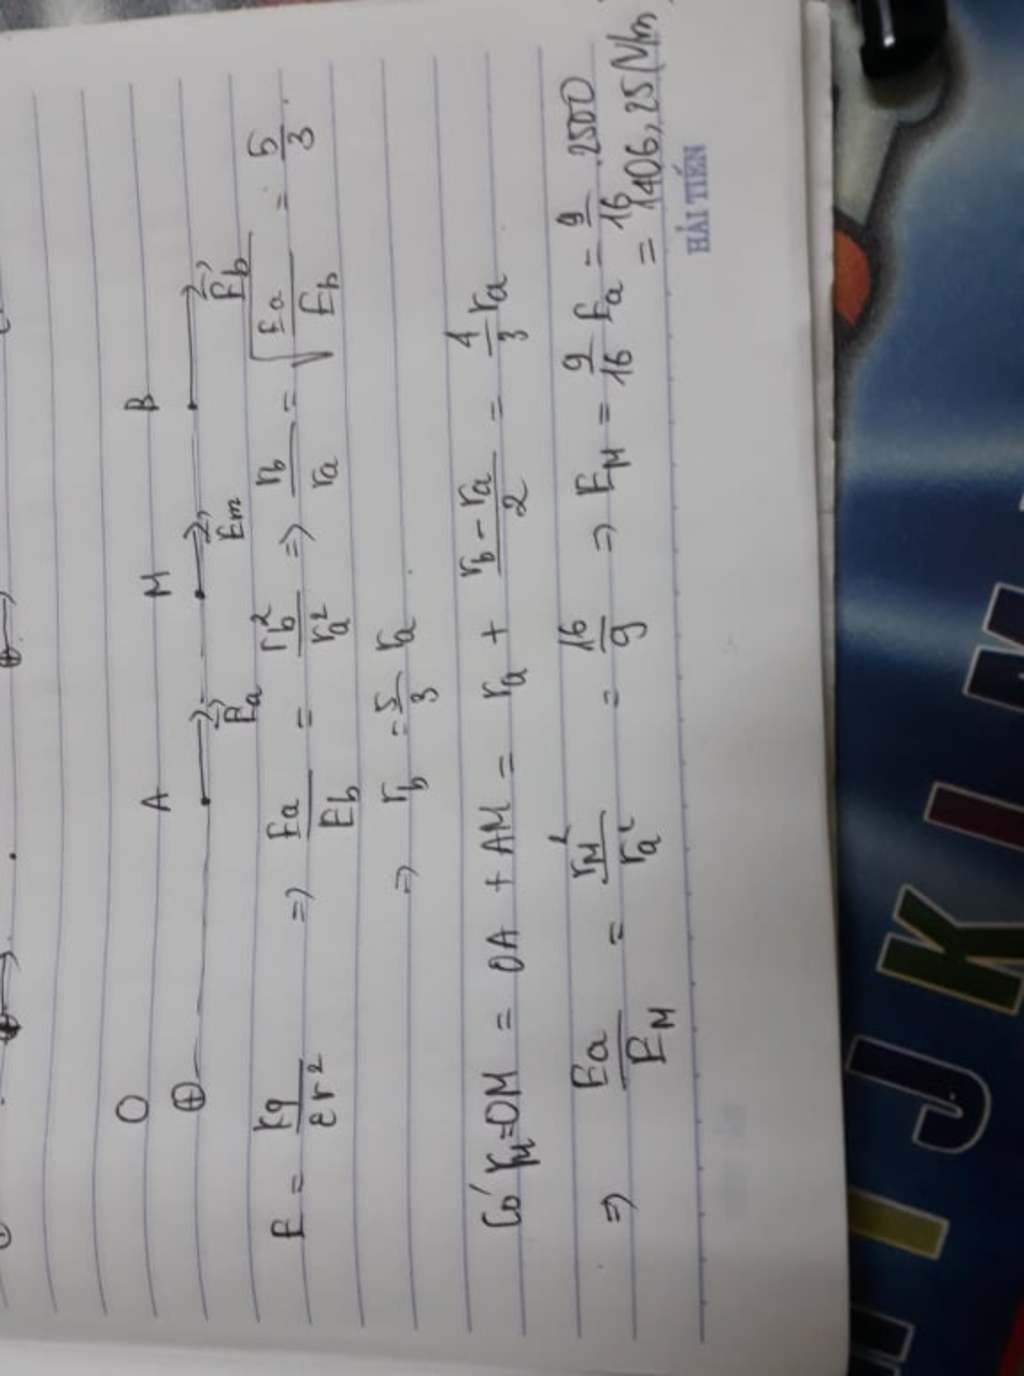 O A M B
⊕ E⃗a E⃗m E⃗b
E = kq/εr² => Ea/Eb = rb²/ra² => rb/ra = √(Ea/Eb) = 5/3.
=> rb = 5/3 ra.
Có rM = OM = OA + AM = ra + (rb - ra)/2 = 4/3 ra
=> Ea/EM = rM²/ra² = 16/9 => EM = 9/16 Ea = 9/16 .2500
= 1406,25 (V/m)
HẢI TIẾN
I J K L M